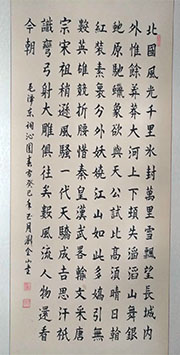 北國風光千里冰封萬里雪飄望長城內
外惟餘莽莽大河上下頓失滔滔山舞銀
蛇原馳蠟象欲與天公試比高須晴日看
紅裝素裹分外妖嬈江山如此多嬌引無
數英雄競折腰惜秦皇漢武畧輸文采唐
宗宋祖稍遜風騷一代天驕成吉思汗祇
識彎弓射大雕俱往矣數風流人物還看
今朝
毛澤東詞沁園春雪癸巳年月劉金